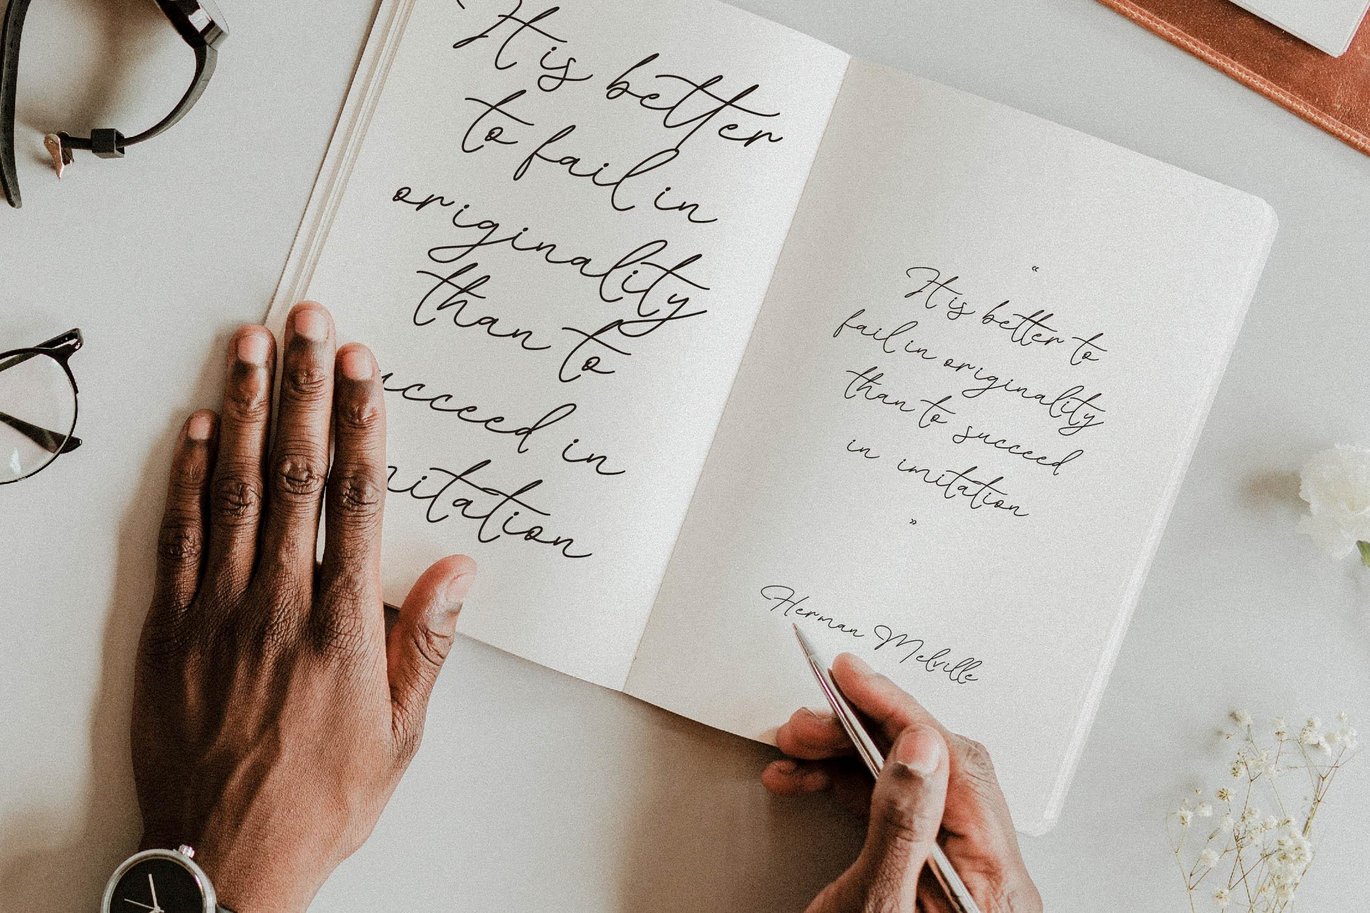 It is better
to fail in
originality
than to
ucceed in
itation
“
It is better to
fail in originality
than to succeed
in imitation
”
Herman Melville